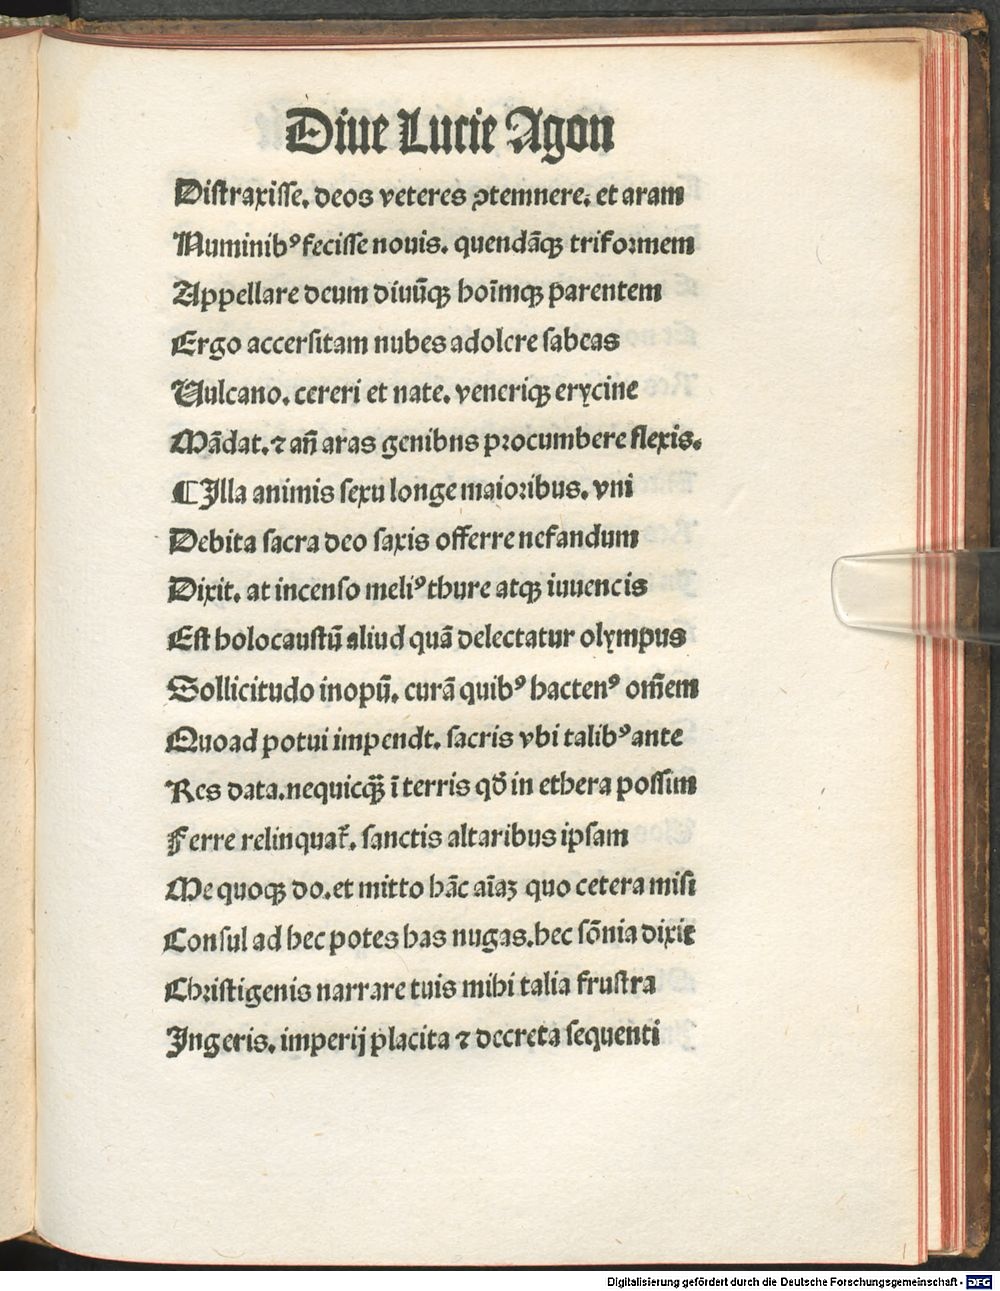 Diue Lucie Agon
Distraxisse. deos veteres ꝯtemnere. et aram
Numinibꝰ fecisse nouis. quendāqꝫ triformem
Appellare deum diuūqꝫ hoīmqꝫ parentem
Ergo accersitam nubes adolere sabeas
Vulcano. cereri et nate. veneriqꝫ erycine
Mādat. ⁊ añ aras genibns procumbere flexis.
¶ Illa animis sexu longe maioribus. vni
Debita sacra deo saxis offerre nefandum
Dixit. at incenso meliꝰ thure atqꝫ iuuencis
Est holocaustū aliud quā delectatur olympus
Sollicitudo inopū. curā quibꝰ hactenꝰ om̄em
Quoad potui impendt. sacris vbi talibꝰ ante
Res data. nequicq̄ꝫ ī terris qđ in ethera possim
Ferre relinquat᷑. sanctis altaribus ipsam
Me quoqꝫ do. et mitto hāc aīaꝫ quo cetera misi
Consul ad hec potes has nugas. hec sōnia dixit
Christigenis narrare tuis mihi talia frustra
Ingeris. imperij placita ⁊ decreta sequenti
Digitalisierung gefördert durch die Deutsche Forschungsgemeinschaft - DFG